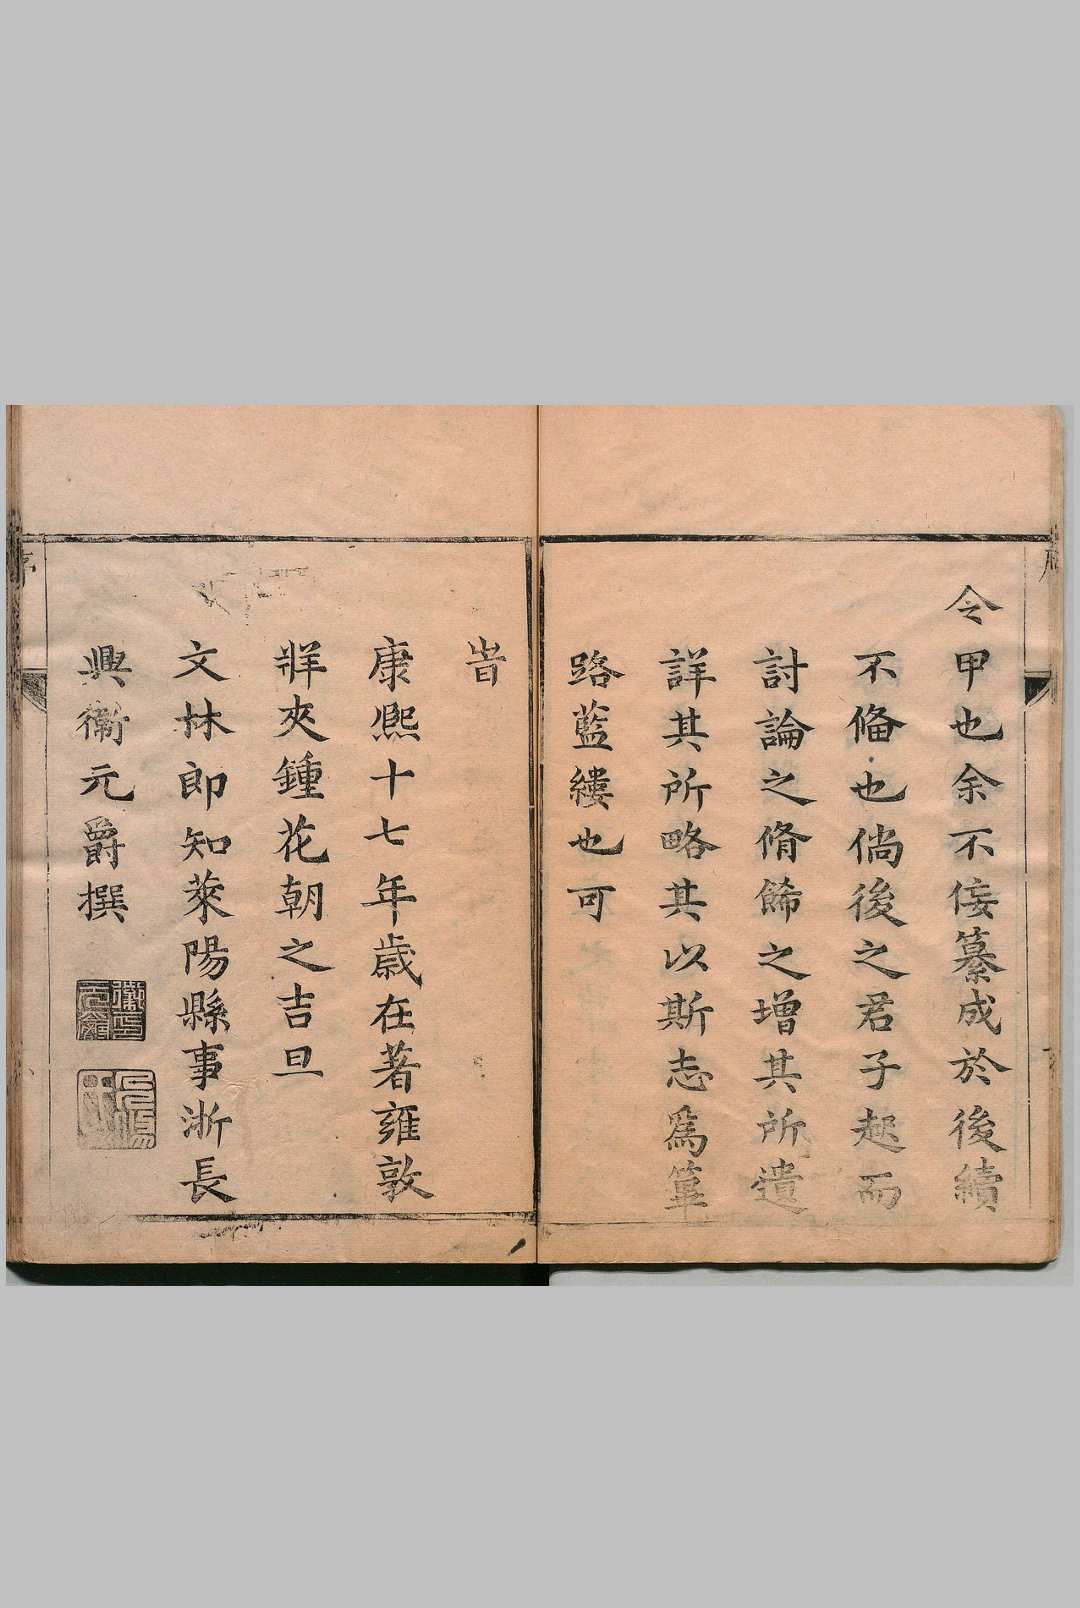 令甲也余不佞纂成於後續
不俻也倘後之君子起而
討論之脩餙之增其所遺
詳其所略其以斯志爲篳
路藍縷也可
旹
康熙十七年歲在著雍敦
牂夾鍾花朝之吉旦
文林郎知萊陽縣事浙長
興衛元爵撰
序